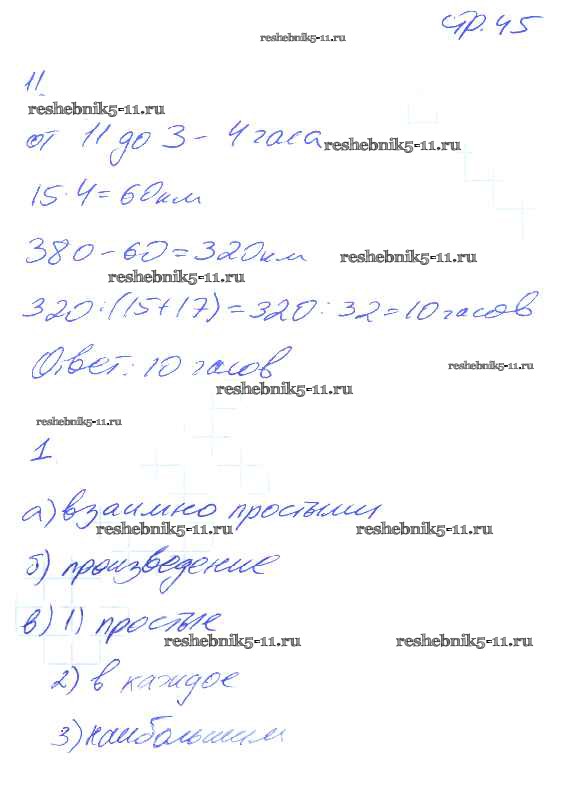 стр. 45
reshebnik5-11.ru
11
reshebnik5-11.ru
от 11 до 3 - 4 часа reshebnik5-11.ru
15·4=60км
380-60=320км reshebnik5-11.ru
reshebnik5-11.ru
320:(15+17)=320:32=10 часов
Ответ: 10 часов reshebnik5-11.ru
reshebnik5-11.ru
reshebnik5-11.ru
1
а) взаимно простыми
reshebnik5-11.ru reshebnik5-11.ru
б) произведение
в) 1) простые
reshebnik5-11.ru reshebnik5-11.ru
2) в каждое
3) наибольшим